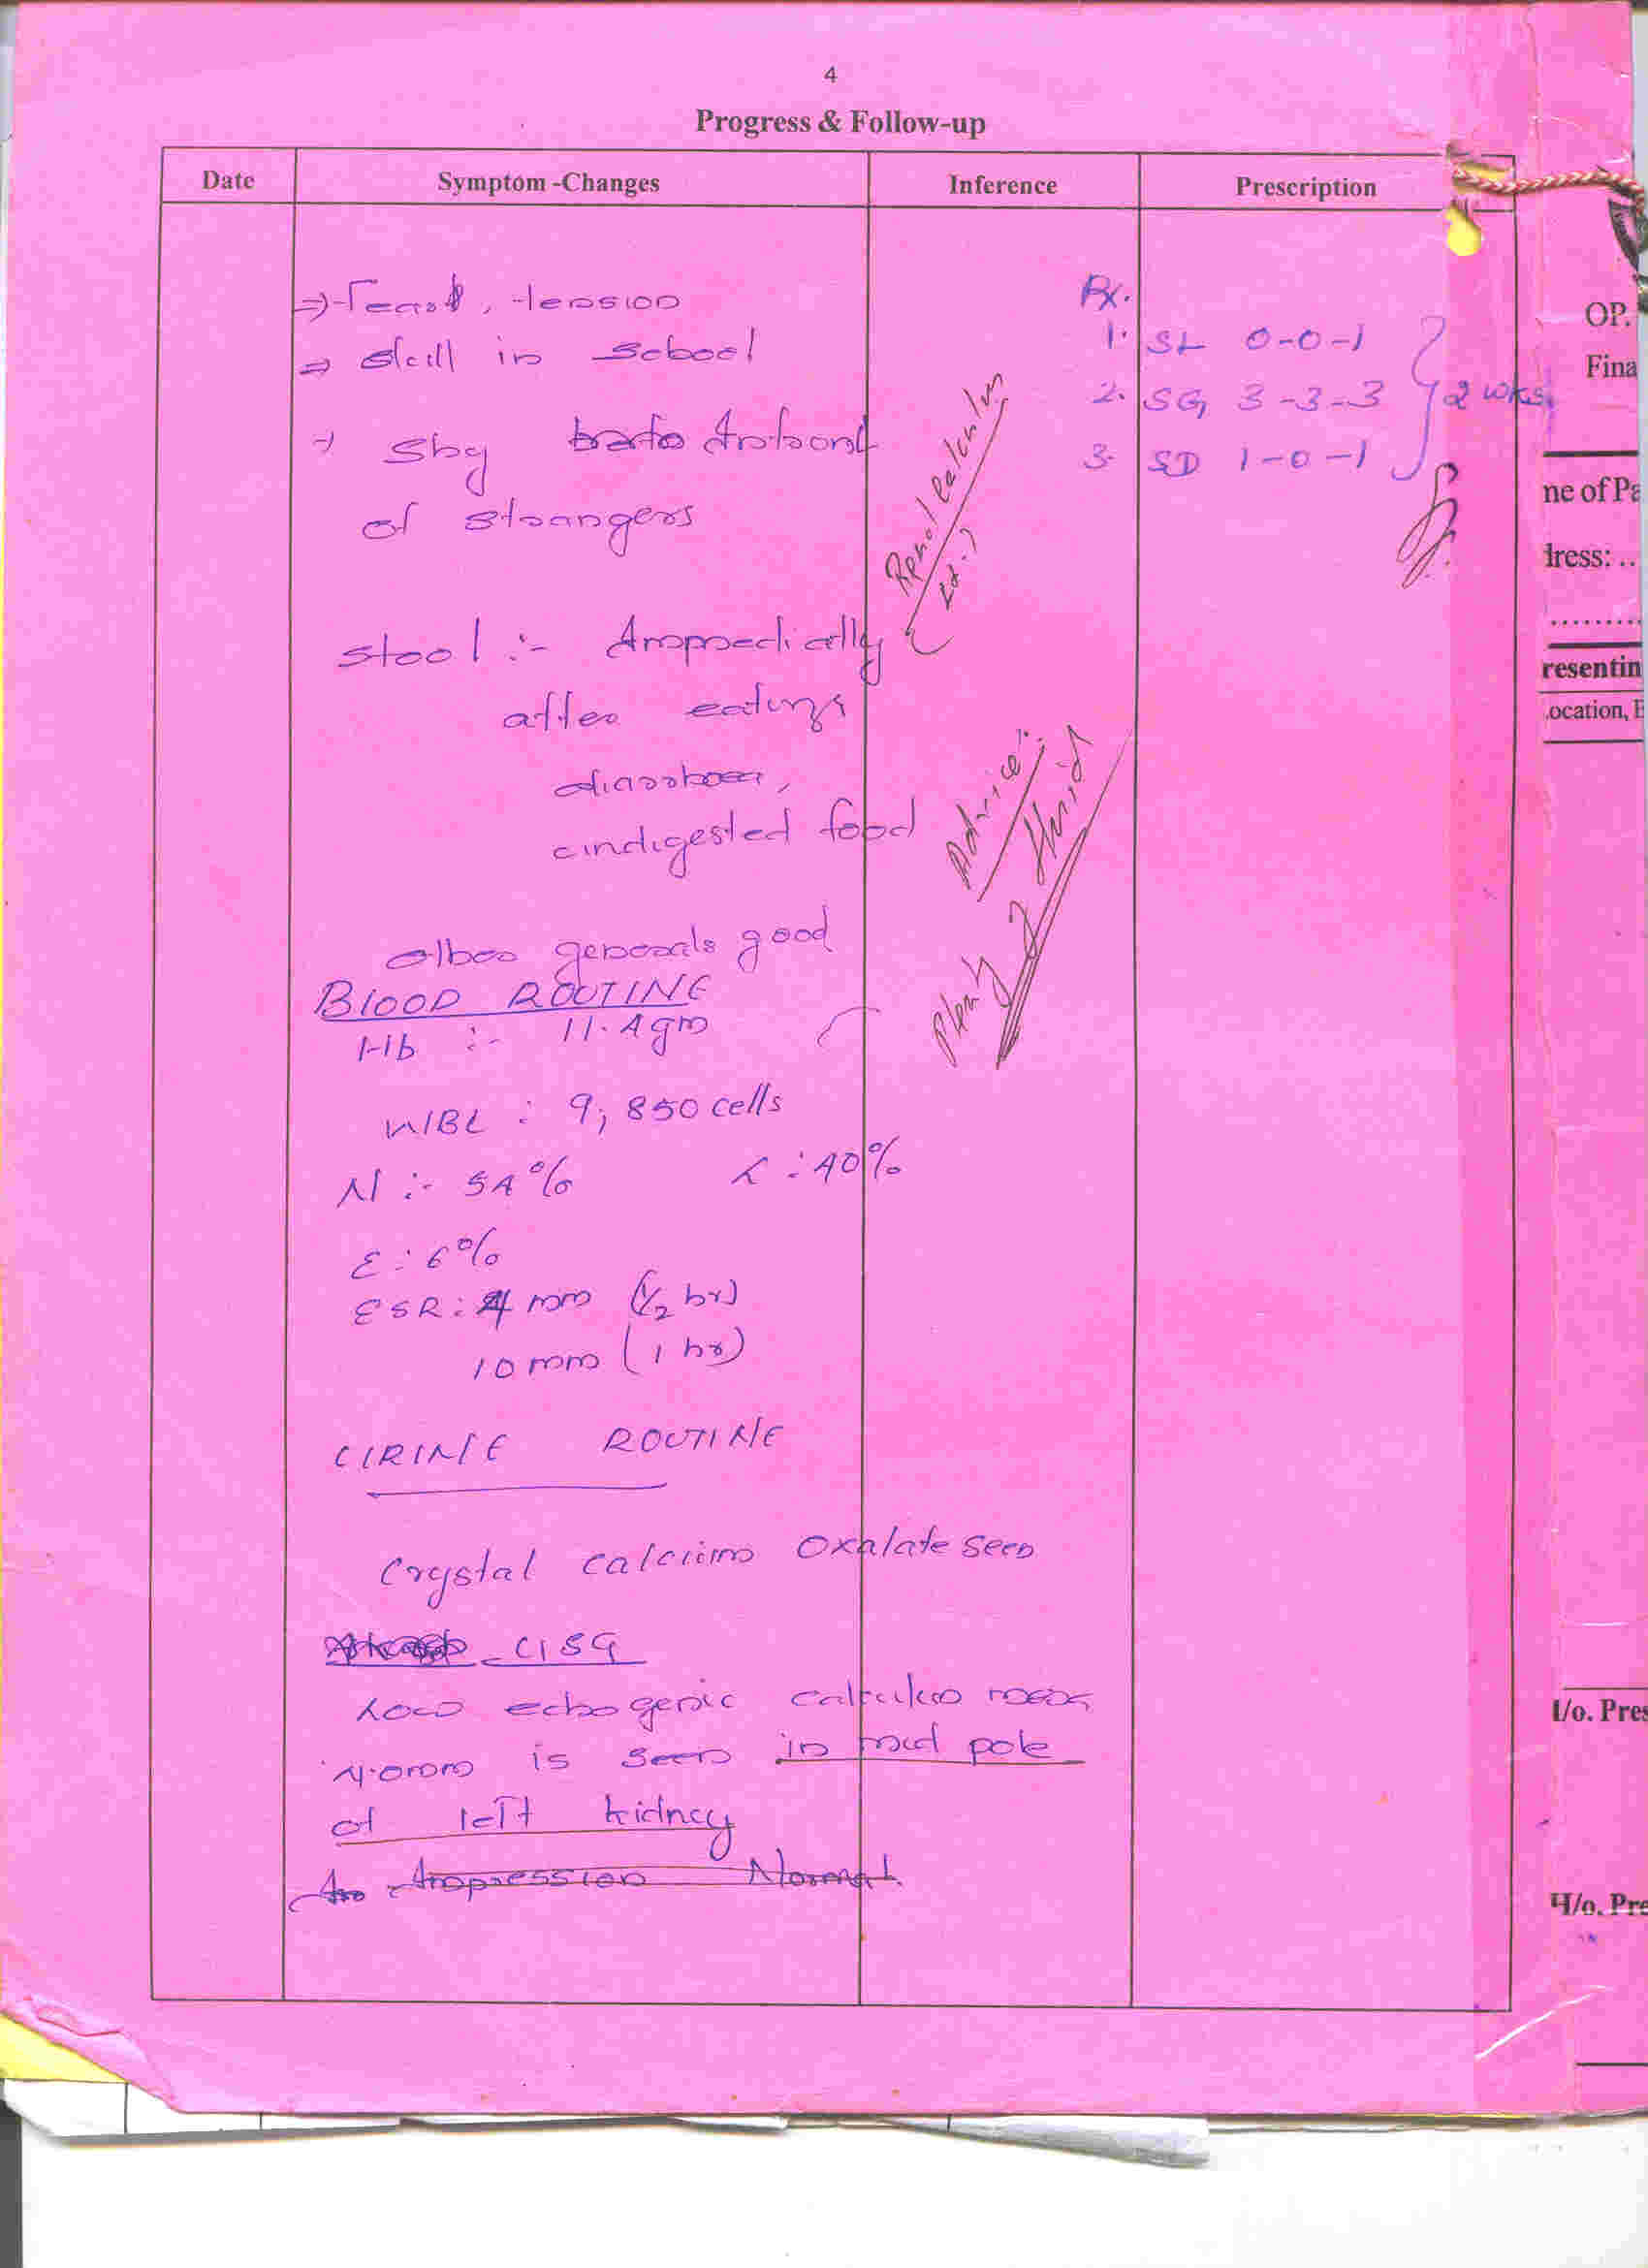 4
Progress & Follow-up
Date Symptom -Changes Inference Prescription
⇒ Fear, tension
⇒ skill in school
→ Shy infront
of strangers
Stool :- Immediately
after eating
diarrhoea,
undigested food
other generals good
BLOOD ROUTINE
Hb :- 11.4gm
WBC : 9,850 cells
N :- 54% L : 40%
E : 6%
ESR : 4 mm (1/2 hr)
10 mm (1 hr)
URINE ROUTINE
Crystal calcium oxalate seen
USG
Low echogenic calculus
4.0mm is seen in mid pole
of left kidney
Impression Normal
Renal calculus
(Lt.)
Advice:
Plenty of fluid
Rx.
1. SL 0-0-1
2. SG 3-3-3
3. SD 1-0-1
2 wks
OP.
Fina
ne of Pa
dress: ..
resentin
ocation, E
I/o. Pres
H/o. Pre